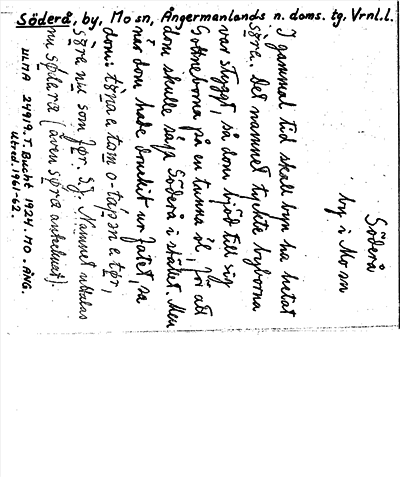 Söderå, by, Mo sn, Ångermanlands n. doms. tg. Vrnl.l.
Söderå
by i Mo sn
I gammal tid skall byn ha hetat
søra. Det namnet tyckte byborna
var styggt, så dom bjöd till sig
Gottneborna på en tunna öl, för att
dom skulle säga Söderå i stället. Men
när dom hade druckit ur fatet, sa
dom: tønna e tom o-tápən e tør,
søra nu som før. Sg. Namnet uttalas
nu sødəra (även søra antecknat).
ULMA 24919. T. Bucht 1924. MO - ÅNG.
Utred. 1961-62.